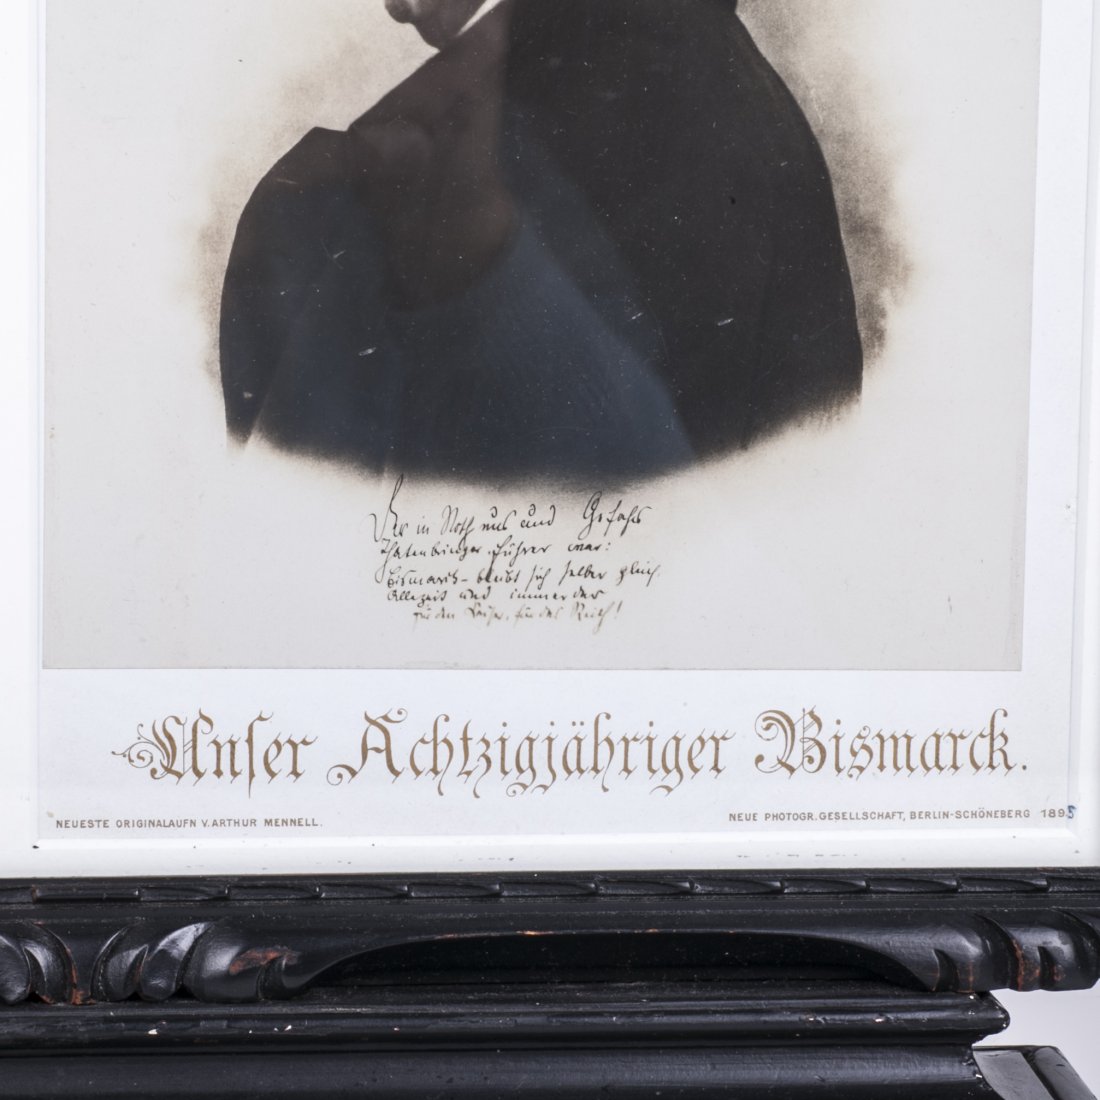 Der in Noth uns und Gefahr
Thatenbringer, Führer war:
Bismarck – bleibt sich selber gleich,
Allezeit und immerdar
Für den Kaiser, für das Reich!
Unser Achtzigjähriger Bismarck.
NEUESTE ORIGINALAUFN V. ARTHUR MENNELL.
NEUE PHOTOGR. GESELLSCHAFT, BERLIN-SCHÖNEBERG 1895